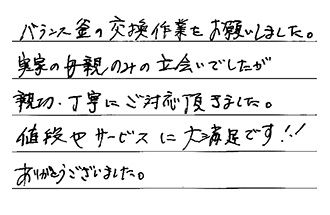 バランス釜の交換作業をお願いしました。
実家の母親のみの立会いでしたが
親切、丁寧にご対応頂きました。
値段やサービスに大満足です!!
ありがとうございました。